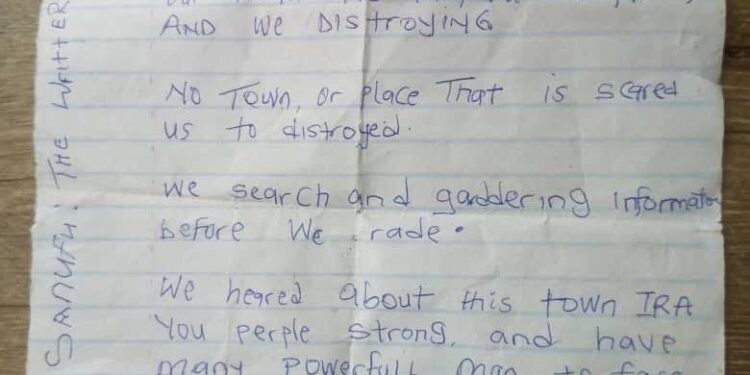 AND WE DISTROYING
NO TOWN, OR place That is scared
us to distroyed.
we search and gaddering informatio
before We rade.
We heared about this town IRA
You perple strong, and have
many powerfull man to face
SANUFU: THE WRITTER